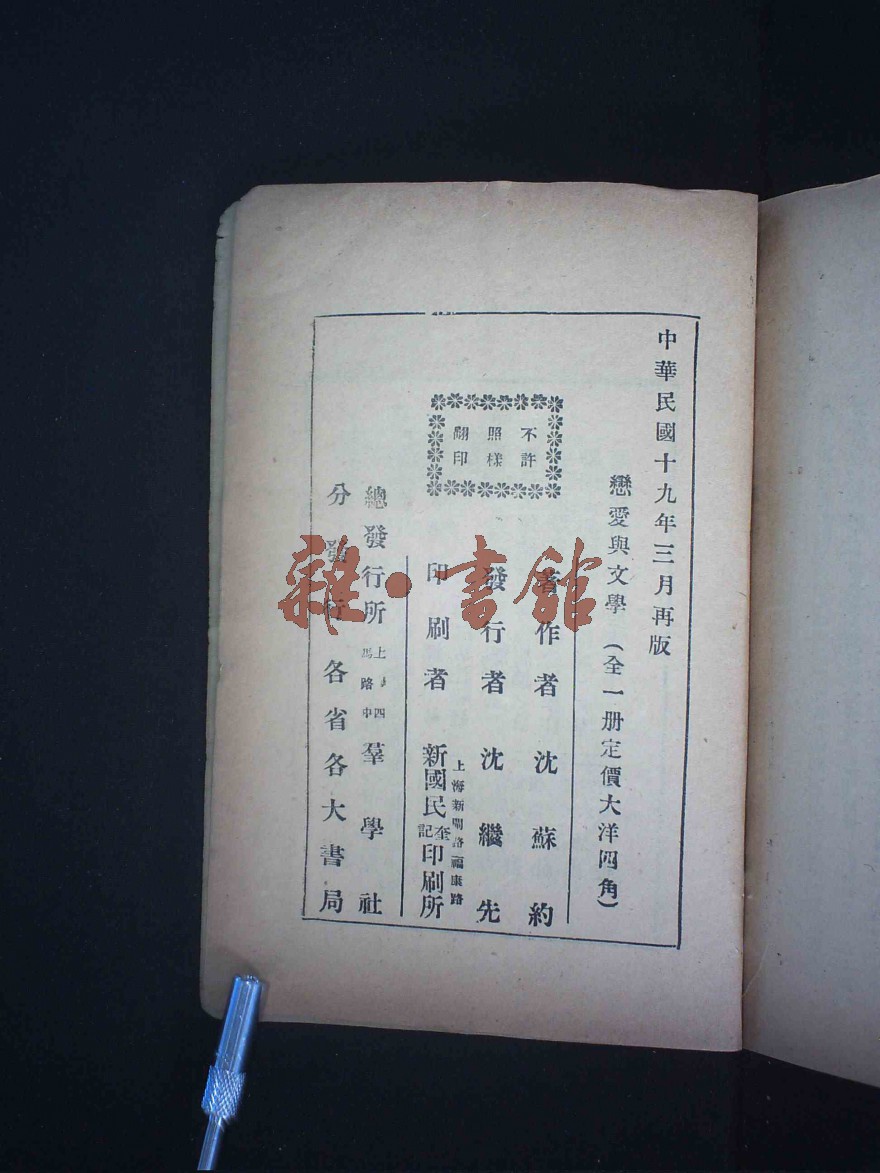 中華民國十九年三月再版
戀愛與文學（全一册定價大洋四角）
不許
照樣
翻印
著作者 沈蘇約
發行者 沈繼先
上海新閘路福康路
印刷者 新國民奎記印刷所
總發行所 上 四馬路中 羣學社
分發行 各省各大書局
雜·書館